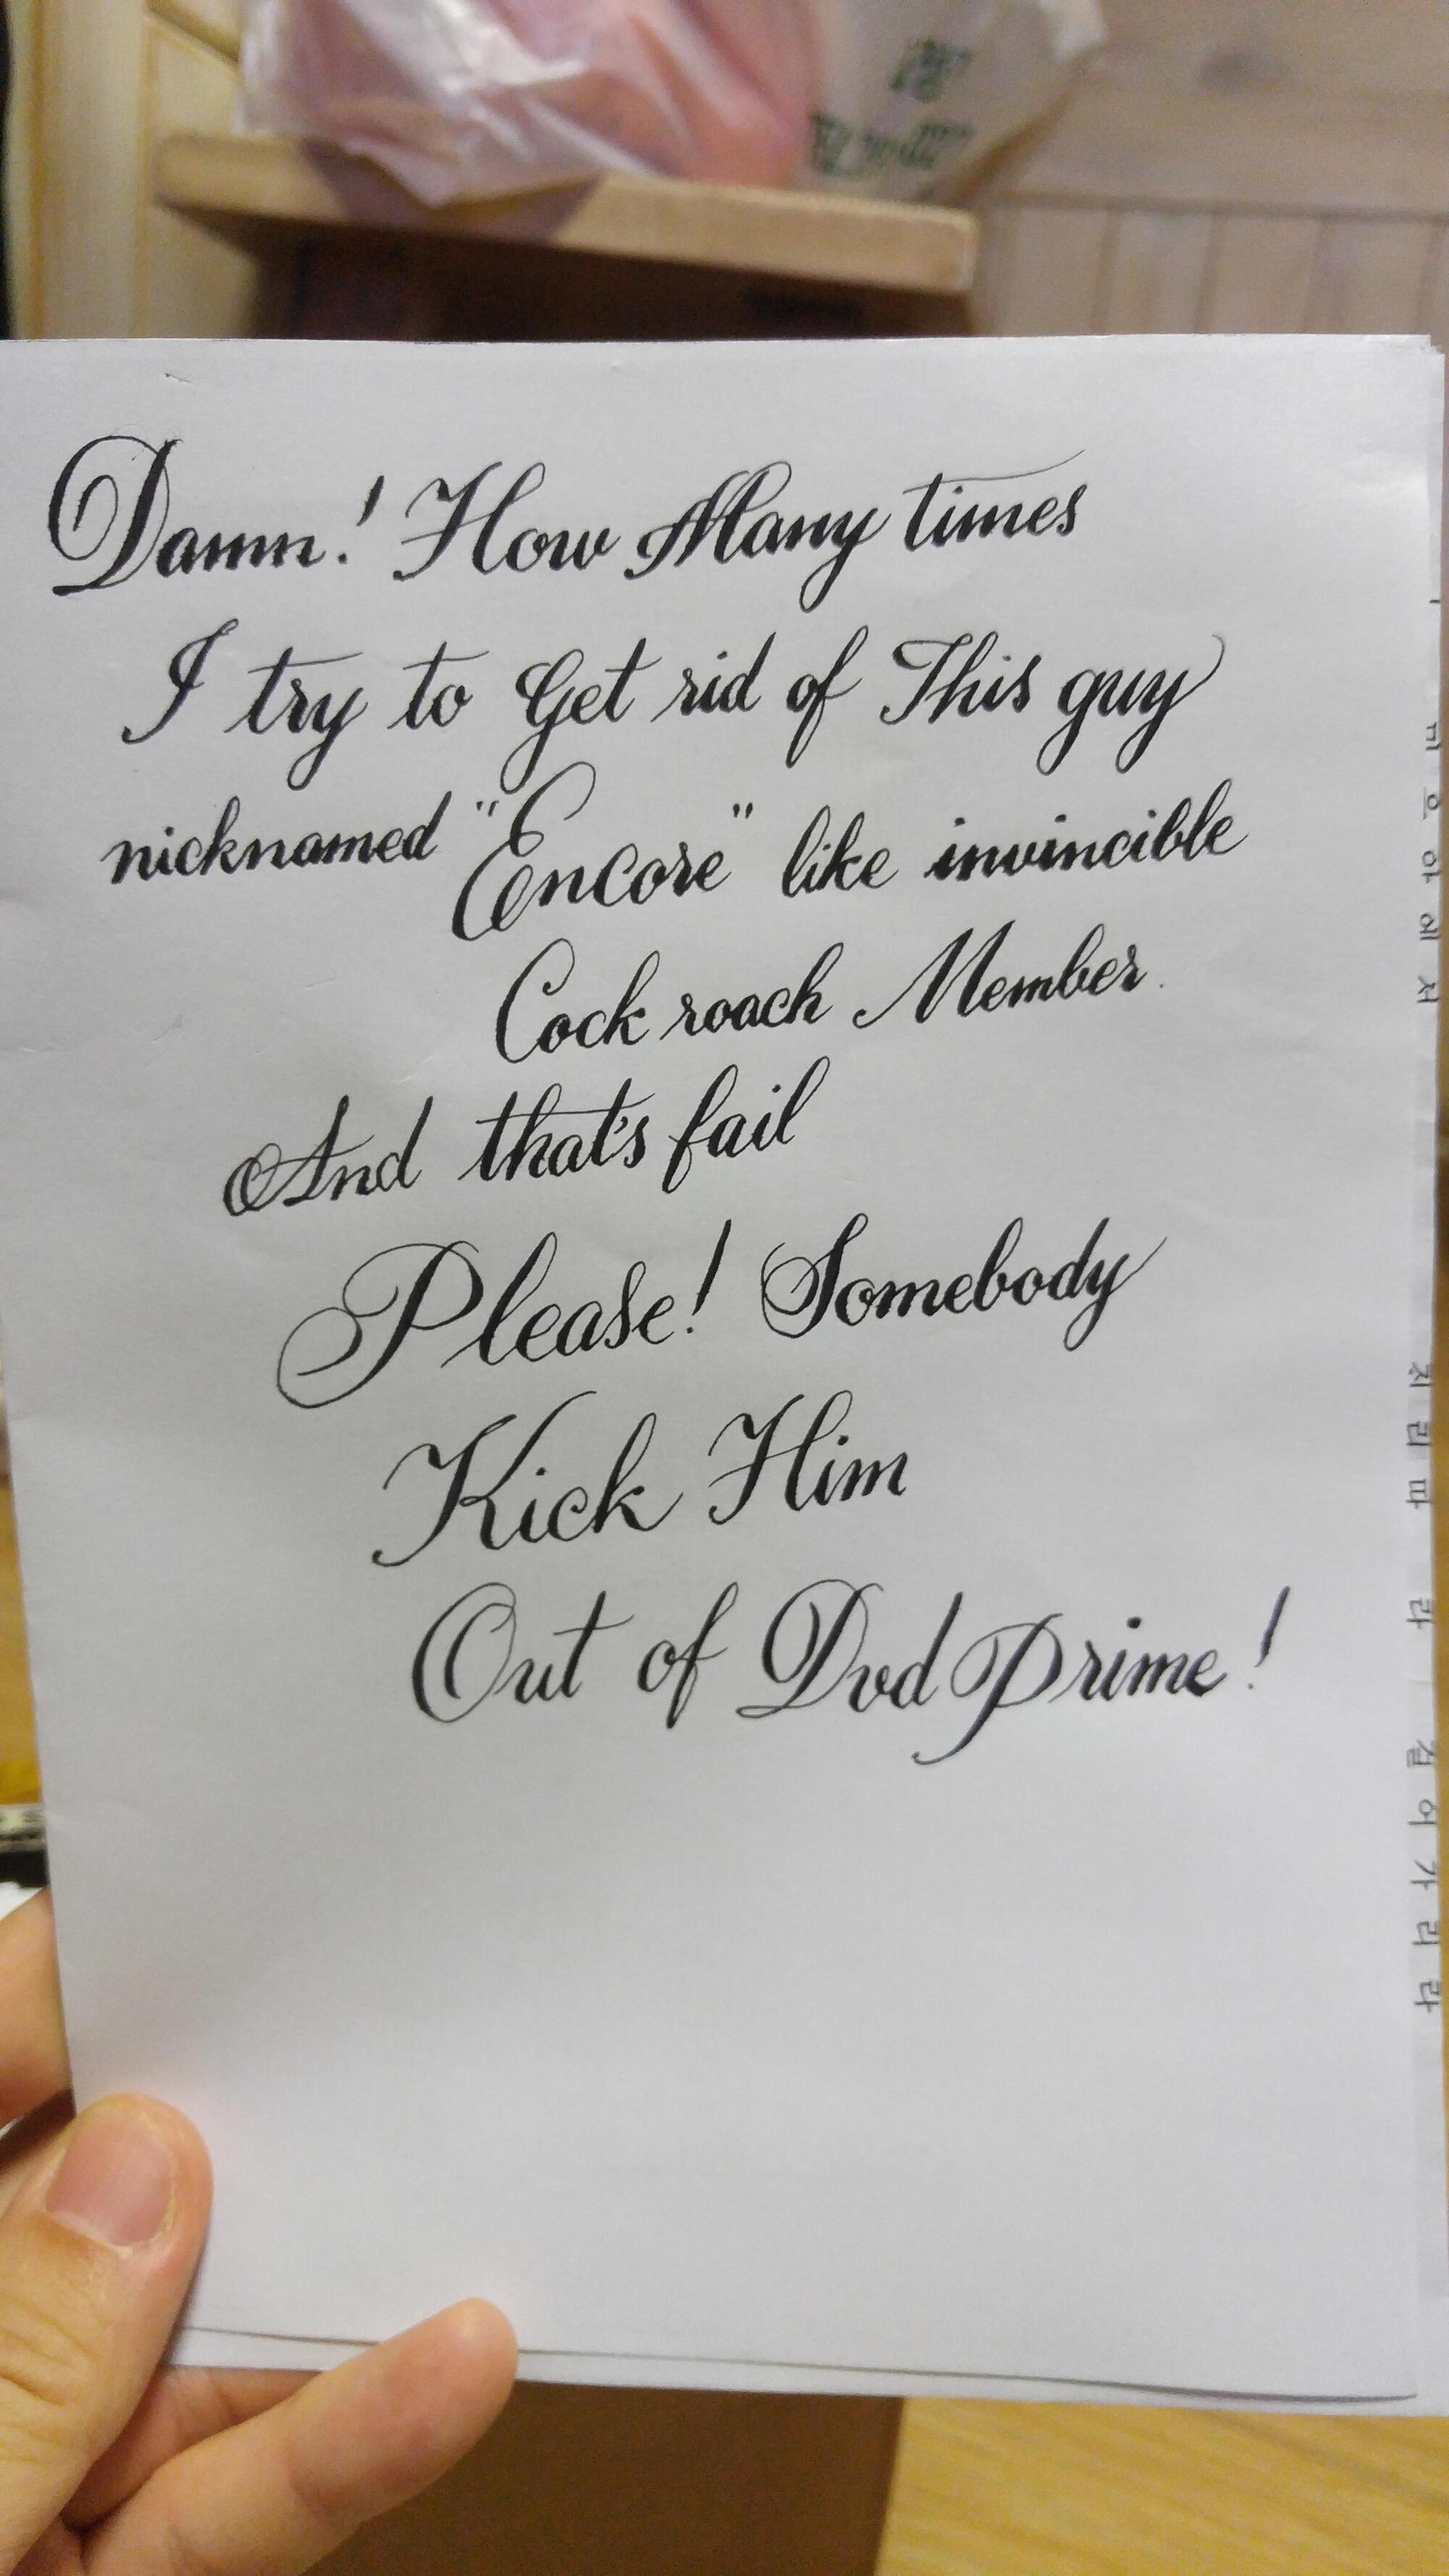 Damn! How Many times
I try to Get rid of This guy
nicknamed "Encore" like invincible
Cock roach Member.
And that's fail
Please! Somebody
Kick Him
Out of Dvd Prime!